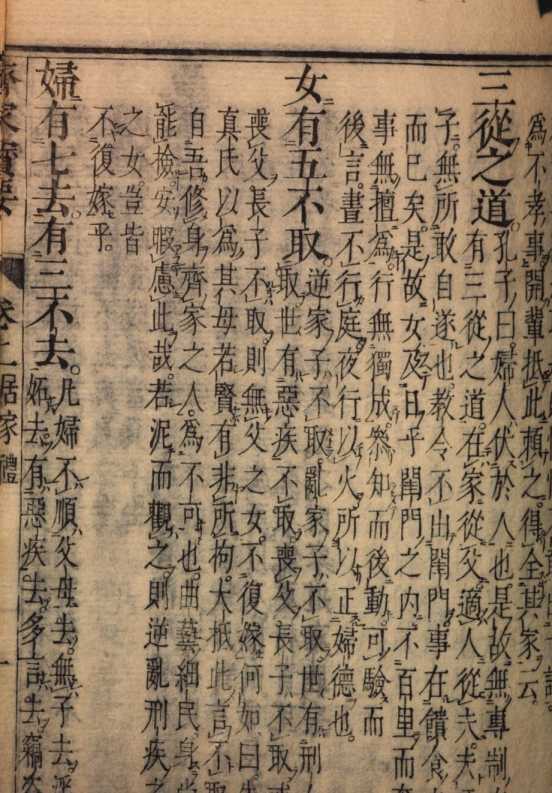 為不孝事。開輩抵此頼之。得全其家云。
三從之道
孔子曰。婦人伏於人也。是故無專制
有三從之道。在家從父。適人從夫。夫
子。無所敢自遂也。教令不出閨門。事在饋食
而已矣。是故女及日乎閨門之內。不百里而
事無擅為。行無獨成。叅知而後動。可驗而
後言。晝不行庭。夜行以火。所以正婦德也。
女有五不取。
逆家子不取。亂家子不取。世有刑
取。世有惡疾不取。喪父長子不取
喪父長子不取。則無父之女。不復嫁。何如曰
真氏以為其母若賢。有非所拘。大抵此言。不
自吾修身齊家之人。為不可也。曲藝細民身
罷撿安暇慮此哉。若泥而觀之。則逆亂刑疾之
之女。豈皆
不復嫁乎。
婦有七去。有三不去。
凡婦不順父母去。無子去。
妬去。有惡疾去。多言去。竊
齊家寶要 居家禮